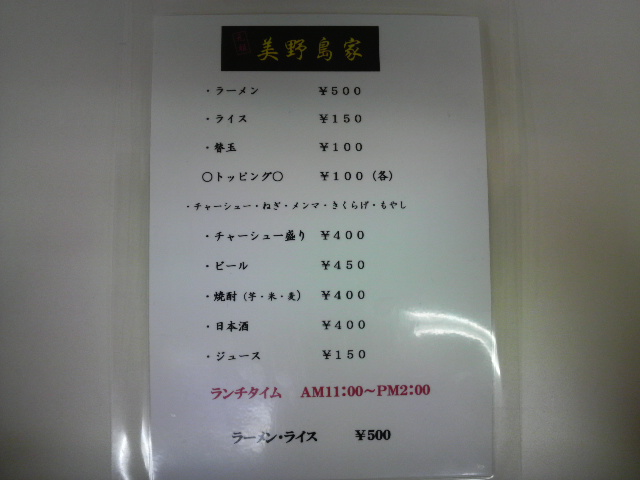 美野島家
・ラーメン ￥５００
・ライス ￥１５０
・替玉 ￥１００
○トッピング○ ￥１００（各）
・チャーシュー・ねぎ・メンマ・きくらげ・もやし
・チャーシュー盛り ￥４００
・ビール ￥４５０
・焼酎（芋・米・麦） ￥４００
・日本酒 ￥４００
・ジュース ￥１５０
ランチタイム AM11:00～PM2:00
ラーメン・ライス ￥500